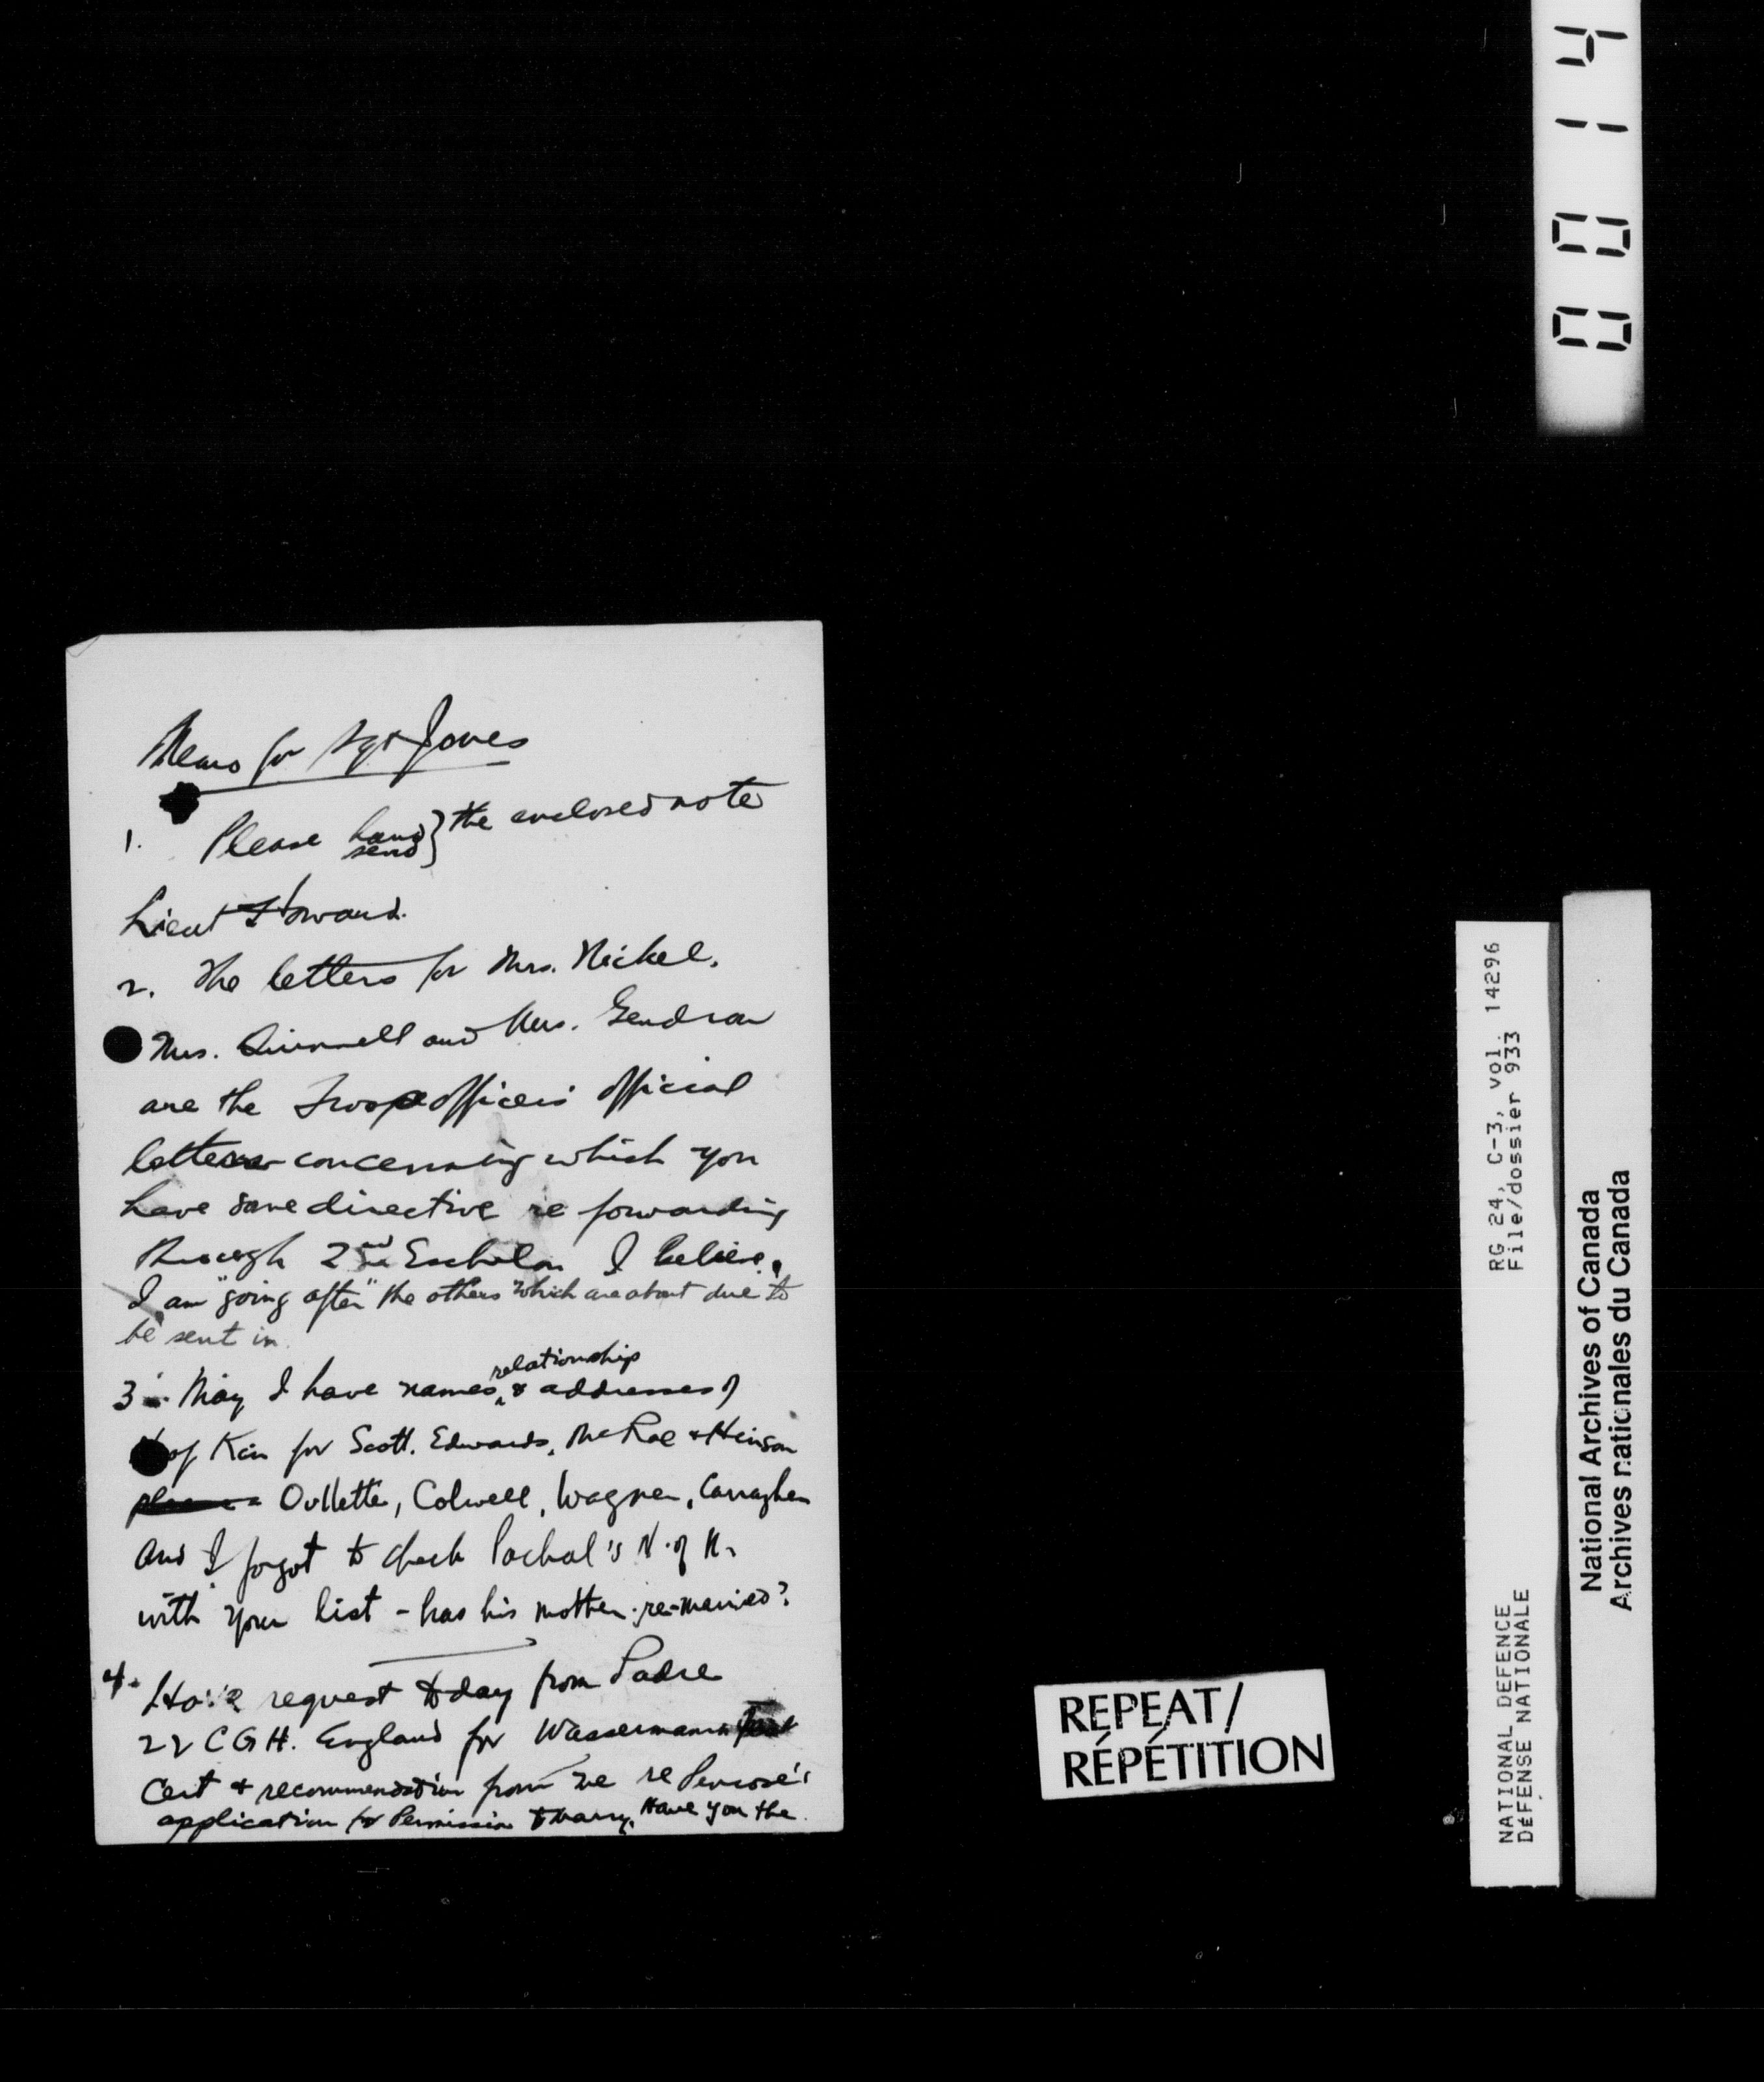 Memo for Sgt Jones
1. Please hand send } the enclosed note
Lieut Howard.
2. The letters for Mrs. Nickel,
Mrs. Quinnell and Mrs. Gendron
are the Troop officers' official
letters concerning which you
have some directive re forwarding
through 2nd Eschelon I believe.
I am "going after" the others which are about due to
be sent in.
3. May I have names, relationship & addresses of
of Kin for Scott. Edwards, McRae & Hinson
Oullette, Colwell, Wagner, Carraghen
and I forgot to check Pachal's N. of K.
with your list - has his mother re-married?
4. Have request today from Padre
22 CGH. England for Wassermann test
Cert & recommendation from me re Penrose's
application for Permission to marry. Have you the
0014
RG 24, C-3, vol. 14296
File/dossier 933
NATIONAL DEFENCE
DÉFENSE NATIONALE
National Archives of Canada
Archives nationales du Canada
REPEAT/
RÉPÉTITION